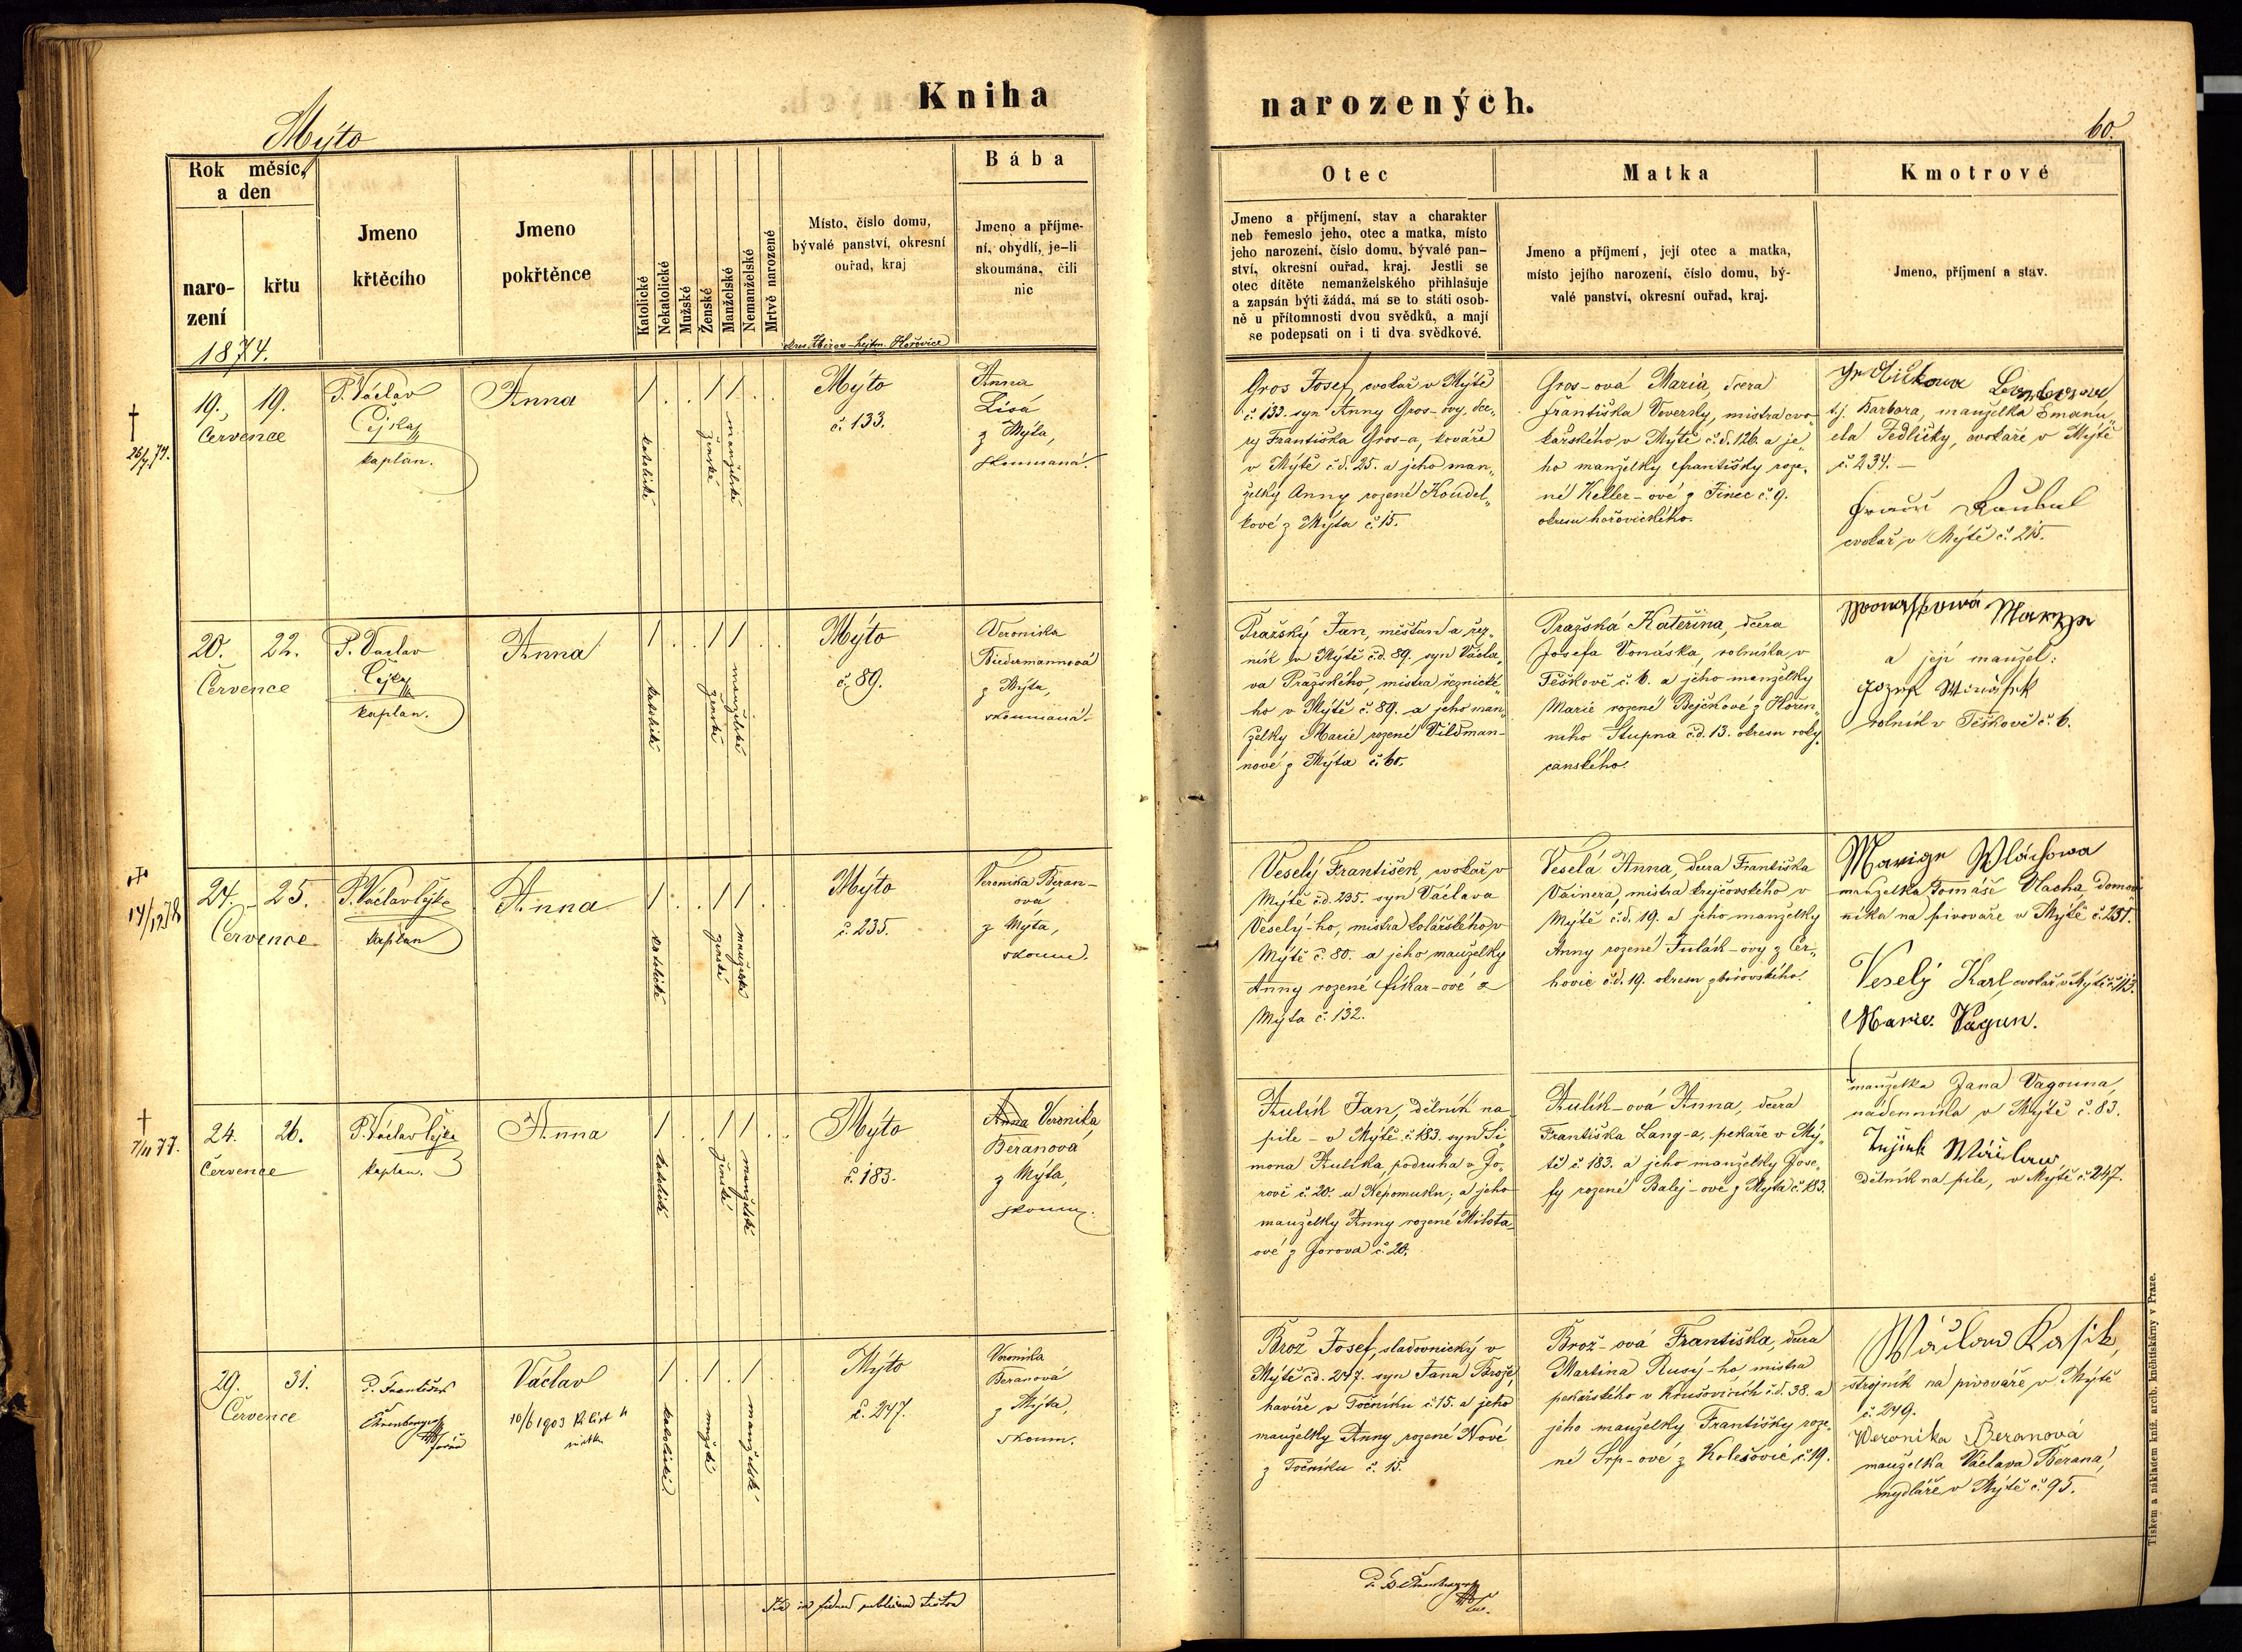 Kniha
narozených.
Mýto
60.
Rok měsíc,
a den
naro-
zení
křtu
Jmeno
křtěcího
Jmeno
pokřtěnce
Katolické
Nekatolické
Mužské
Ženské
Manželské
Nemanželské
Mrtvě narozené
Místo, číslo domu,
bývalé panství, okresní
ouřad, kraj
Bába
Jmeno a příjme-
ní, obydlí, je-li
skoumána, čili
nic
Otec
Jmeno a příjmení, stav a charakter
neb řemeslo jeho, otec a matka, místo
jeho narození, číslo domu, bývalé pan-
ství, okresní ouřad, kraj. Jestli se
otec dítěte nemanželského přihlašuje
a zapsán býti žádá, má se to státi osob-
ně u přítomnosti dvou svědků, a mají
se podepsati on i ti dva svědkové.
Matka
Jmeno a příjmení, její otec a matka,
místo jejího narození, číslo domu, bý-
valé panství, okresní ouřad, kraj.
Kmotrové
Jmeno, příjmení a stav.
1874.
okres Zbirov-hejtm. Hořovice
† 26/7 74.
19. 19.
Července
P. Václav
Čejka
kaplan.
Anna
katolické
ženské
manželské
Mýto
č. 133.
Anna
Lisá
z Mýta,
skoumaná.
Gros Josef, cvokař v Mýtě
č. 133. syn Anny Gros-ovy, dce„
ry Františka Gros-a, kováře
v Mýtě č.d. 25. a jeho man„
želky Anny rozené Koudel„
kové z Mýta č. 15.
Gros-ová Maria, dcera
Františka Veverky, mistra cvo„
kařského v Mýtě č.d. 126. a je„
ho manželky Františky roze„
né Keller-ové z Tinec č. 9.
okresu hořovického.
t.j. Barbora, manželka Emanu„
ela Jedličky, cvokaře v Mýtě
č. 234.
Loubal
cvokař v Mýtě č. 215.
20. 22.
Července
P. Václav
Čejka
kaplan.
Anna
katolické
ženské
manželské
Mýto
č. 89.
Veronika
Biedermannová
z Mýta,
skoumaná.
Pražský Jan, měšťan a řez„
ník v Mýtě č.d. 89. syn Václa„
va Pražského, mistra řeznické„
ho v Mýtě č. 89. a jeho man„
želky Marie rozené Vildman-
nové z Mýta č. 60.
Pražská Kateřina, dcera
Josefa Vonáska, rolníka v
Těškově č. 6. a jeho manželky
Marie rozené Bejčkové z Hořen„
ního Stupna č.d. 13. okresu roky„
canského.
a její manžel:
rolník v Těškově č. 6.
24. 25.
Července
P. Václav Čejka
kaplan
Anna
katolické
ženské
manželské
Mýto
č. 235.
Veronika Beran-
ova
z Mýta,
skoum.
Veselý František, cvokař v
Mýtě č.d. 235. syn Václava
Veselý-ho, mistra kolářského v
Mýtě č. 80. a jeho manželky
Anny rozené Fikar-ové z
Mýta č. 132.
Veselá Anna, dcera Františka
Vainera, mistra krejčovského v
Mýtě č.d. 19. a jeho manželky
Anny rozené Fulák-ovy z Cer„
hovic č.d. 19. okresu zbirovského.
Marige Wláchowa
manželka Tomáše Vlacha domov„
níka na pivováře v Mýtě č. 251.
Veselý Karl, cvokař v Mýtě č. 113.
Marie Vagun.
manželka Jana Vagouna,
nádenníka v Mýtě č. 83.
† 7/11 77.
24. 26.
Července
P. Václav Čejka
kaplan.
Anna
katolické
ženské
manželské
Mýto
č. 183.
Anna Veronika
Beranová
z Mýta,
skoum.
Kulík Jan, dělník na
pile - v Mýtě č. 183. syn Ši„
mona Kulíka, podruha v Jo„
rově č. 20. u Nepomuku; a jeho
manželky Anny rozené Milota„
ové z Jorova č. 20.
Kulík-ová Anna, dcera
Františka Lang-a, pekaře v Mý„
tě č. 183. a jeho manželky Jose„
fy rozené Balej-ové z Mýta č. 183.
Wáclaw
dělník na pile, v Mýtě č. 247.
29. 31.
Července
P. František
Ehrenberger
farář
Václav
10/6 1903 kř. list
katolické
mužské
manželské
Mýto
č. 247.
Veronika
Beranová
z Mýta,
skoum.
Brož Josef, sladovnický v
Mýtě č.d. 247. syn Jana Brože,
havíře v Točníku č. 15. a jeho
manželky Anny rozené Nové
z Točníku č. 15.
Brož-ová Františka, dcera
Martina Rusý-ho, mistra
pekařského v Krušovicích č.d. 38. a
jeho manželky Františky roze„
né Srp-ové z Kolešovic č. 19.
Wáclaw Kasík,
strojník na pivováře v Mýtě
č. 249.
Weronika Beranová
manželka Václava Berana,
mydláře v Mýtě č. 95.
P. F. Ehrenberger
Tiskem a nákladem kníž. arcib. kněhtiskárny v Praze.